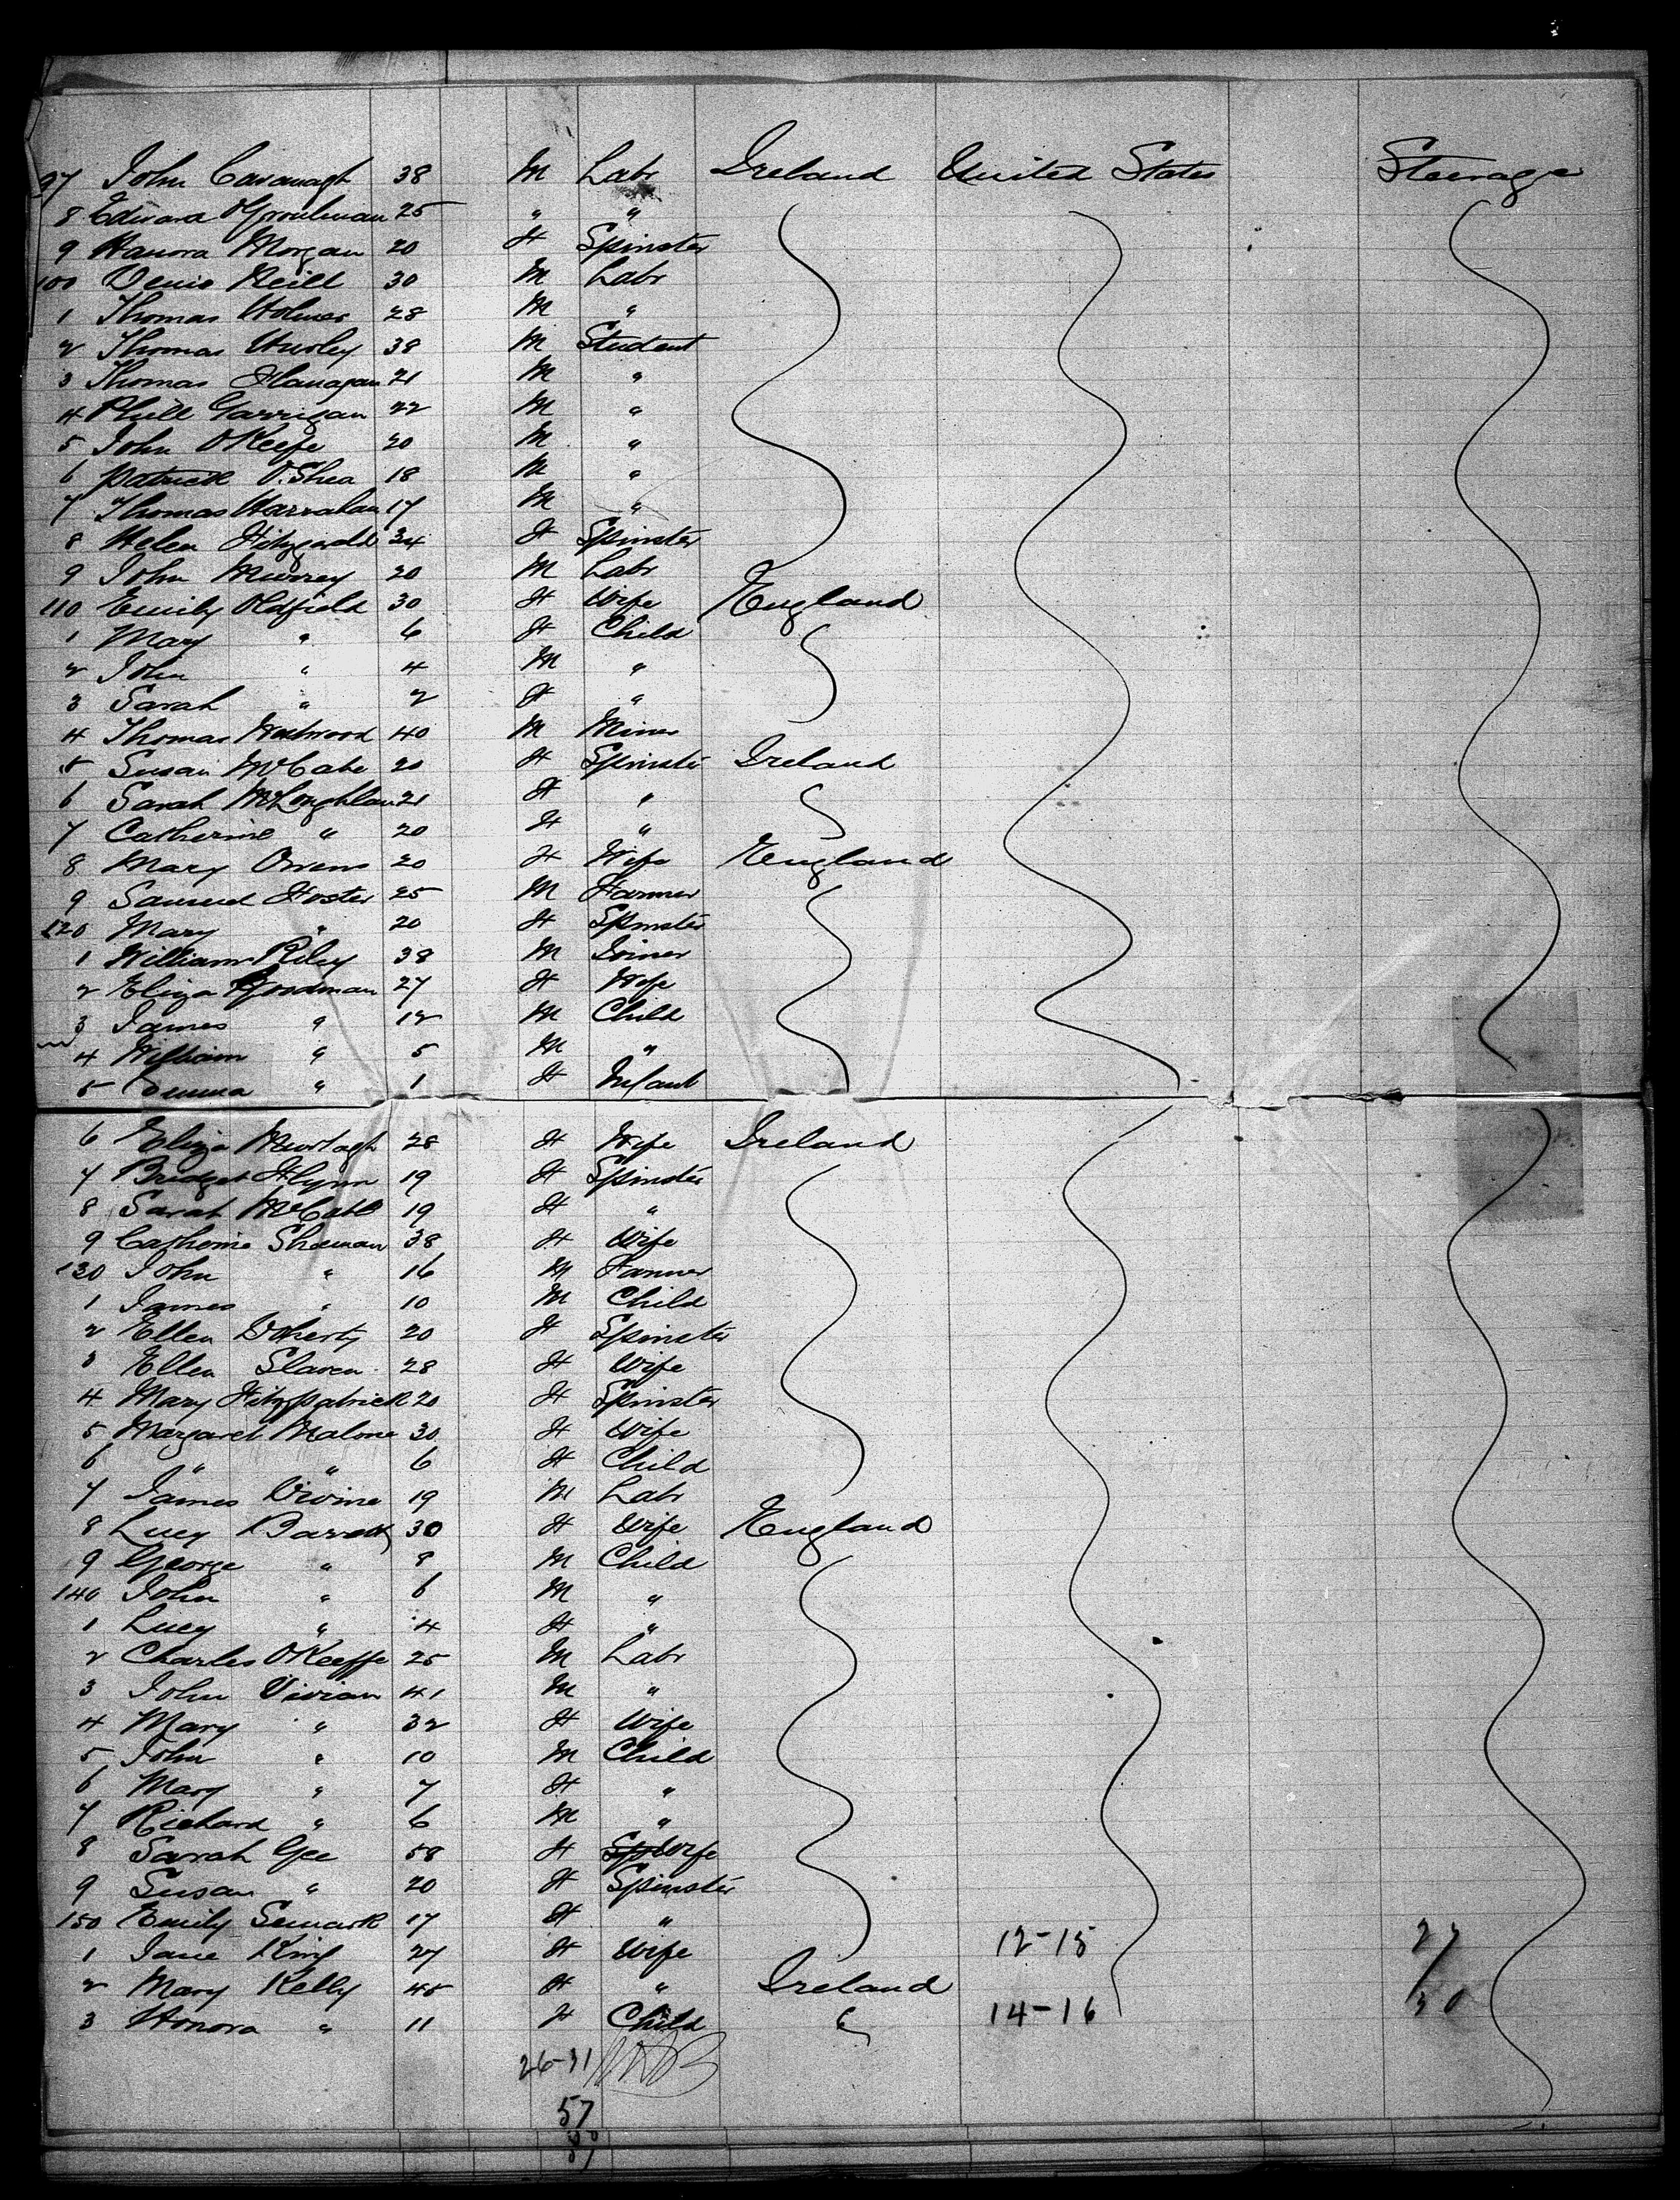 97 John Cavanagh 38 M Labr Ireland United States Steerage
8 Edward 25 " "
9 Hanora Morgan 20 F Spinster
100 Denis Neill 30 M Labr
1 Thomas Holmes 28 M "
2 Thomas Hurley 38 M Student
3 Thomas Flanagan 21 M "
4 Phill Garrigan 22 M "
5 John OKeefe 20 M "
6 Patrick O.Shea 18 M "
7 Thomas Harrahan 17 M "
8 Helen Fitzgerald 34 F Spinster
9 John Murrey 20 M Labr
110 Emily Oldfield 30 F Wife England
1 Mary " 6 F Child
2 John " 4 M "
3 Sarah " 2 F "
4 Thomas 40 M Miner
5 Susan McCabe 20 F Spinster Ireland
6 Sarah McLoughlan 21 F "
7 Catherine " 20 F "
8 Mary Owens 20 F Wife England
9 Samuel Foster 25 M Farmer
120 Mary " 20 F Spinster
1 William Riley 38 M Joiner
2 Eliza Goodman 27 F Wife
3 James " 12 M Child
4 William " 5 M "
5 Emma " 1 F Infant
6 Eliza Murtagh 28 F Wife Ireland
7 Bridget Flynn 19 F Spinster
8 Sarah McCabe 19 F "
9 Catherine 38 F Wife
130 John " 16 M Farmer
1 James " 10 M Child
2 Ellen Doherty 20 F Spinster
3 Ellen Slaven 28 F Wife
4 Mary Fitzpatrick 20 F Spinster
5 Margaret Malone 30 F Wife
6 " " 6 F Child
7 James Divine 19 M Labr
8 Lucy 30 F Wife England
9 George " 8 M Child
140 John " 6 M "
1 Lucy " 4 F "
2 Charles OKeeffe 25 M Labr
3 John Vivian 41 M "
4 Mary " 32 F Wife
5 John " 10 M Child
6 Mary " 7 F "
7 Richard " 6 M "
8 Sarah Gee 58 F Wife
9 Susan " 20 F Spinster
150 Emily Semark 17 F "
1 Jane King 27 F Wife 12-15 27
2 Mary Kelly 45 F " Ireland
3 Honora " 11 F Child " 14-16 30
26-31
57
87